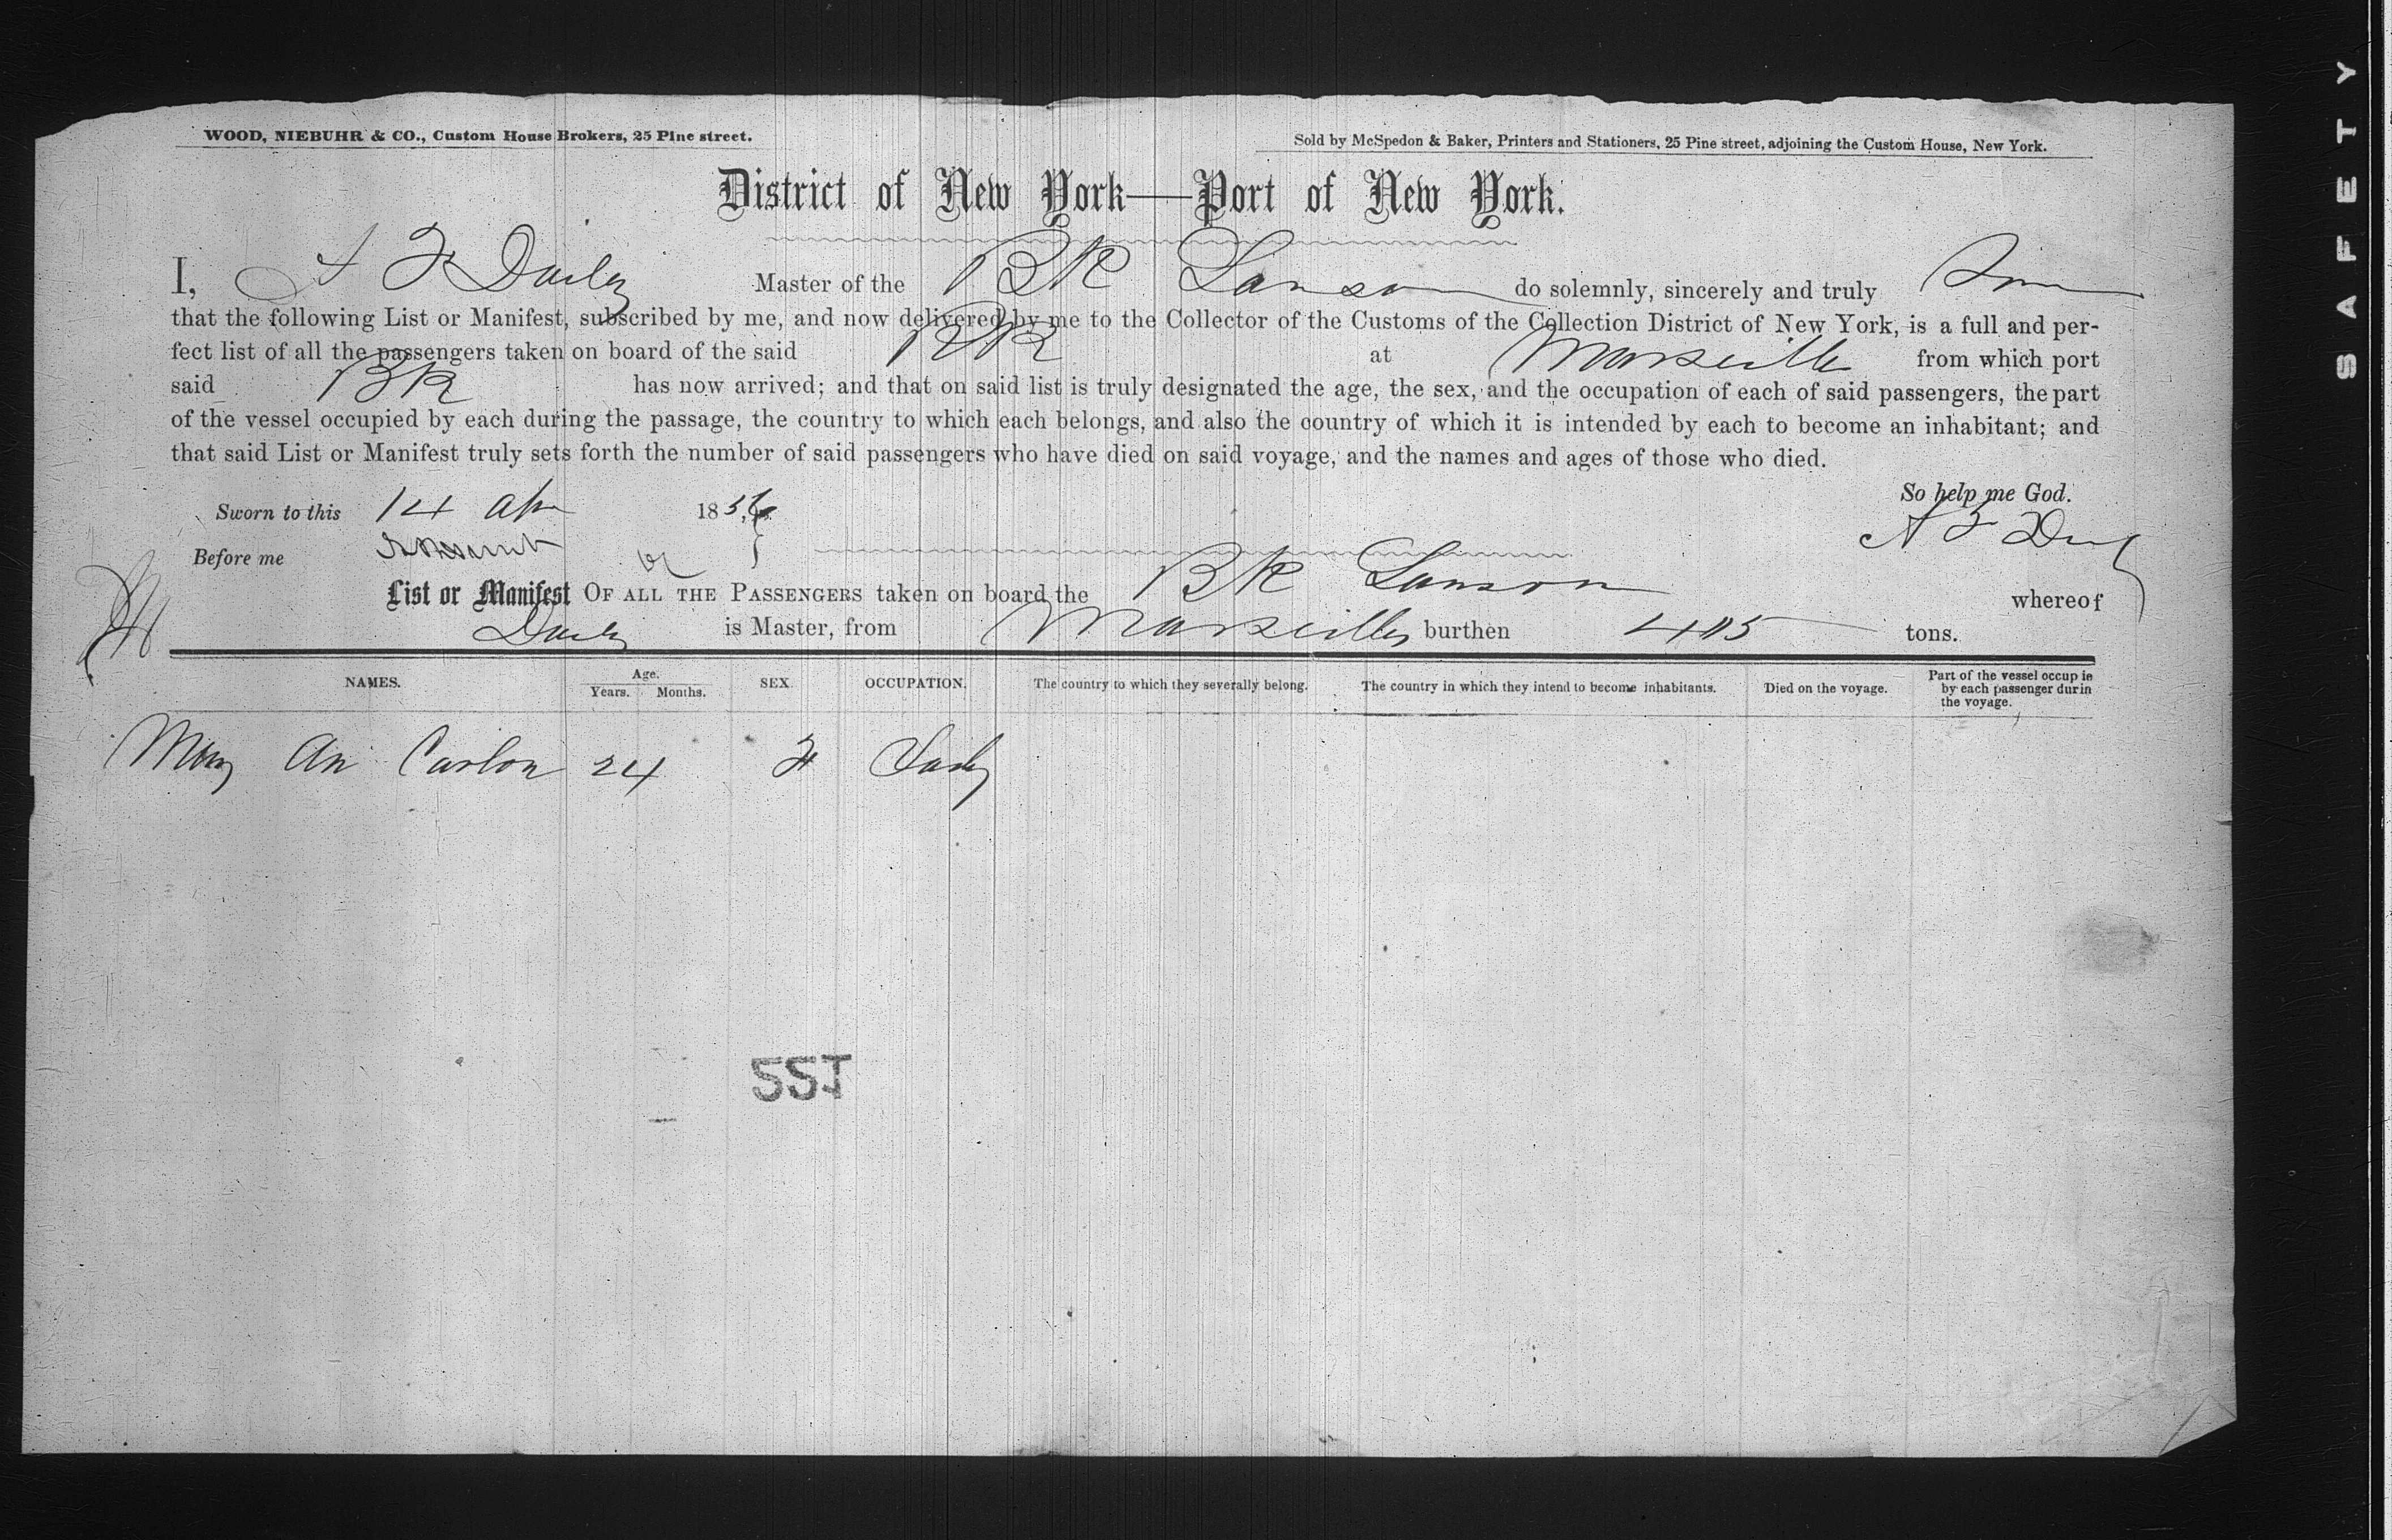 WOOD, NIEBUHR & CO., Custom House Brokers, 25 Pine street.
Sold by McSpedon & Baker, Printers and Stationers, 25 Pine street, adjoining the Custom House, New York.
District of New York—Port of New York.
I, A F Daily Master of the BK Lanson do solemnly, sincerely and truly
that the following List or Manifest, subscribed by me, and now delivered by me to the Collector of the Customs of the Collection District of New York, is a full and per-
fect list of all the passengers taken on board of the said BK at Marseille from which port
said BK has now arrived; and that on said list is truly designated the age, the sex, and the occupation of each of said passengers, the part
of the vessel occupied by each during the passage, the country to which each belongs, and also the country of which it is intended by each to become an inhabitant; and
that said List or Manifest truly sets forth the number of said passengers who have died on said voyage, and the names and ages of those who died.
So help me God.
Sworn to this 14 Ap 1856
A F
Before me
List or Manifest OF ALL THE PASSENGERS taken on board the BK Lanson whereof
Daily is Master, from Marseilles burthen 405 tons.
NAMES. Age. Years. Months. SEX. OCCUPATION. The country to which they severally belong. The country in which they intend to become inhabitants. Died on the voyage. Part of the vessel occupie by each passenger durin the voyage.
Mary An Carlon 24 F Lady
SSI
SAFETY